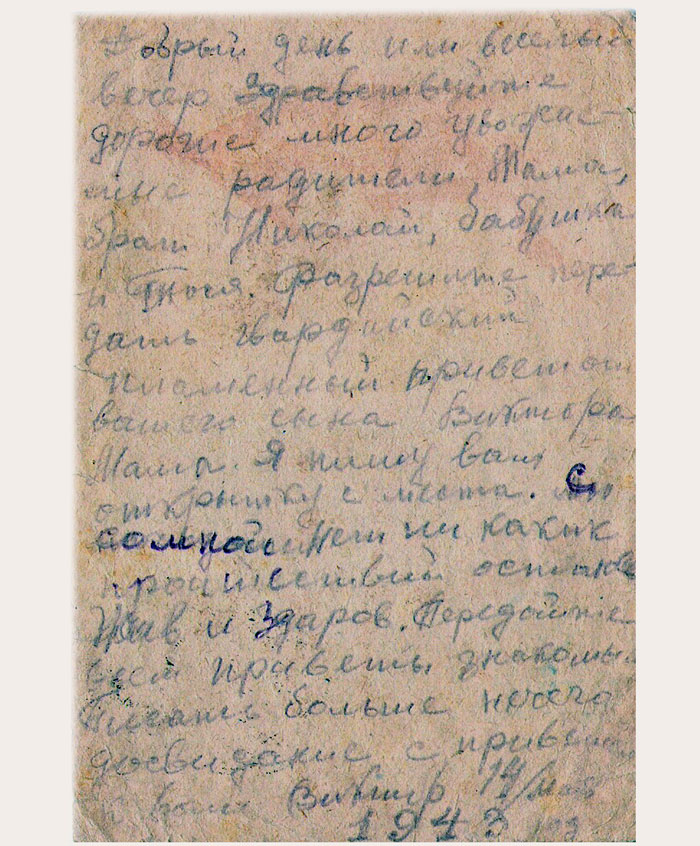 Добрый день или веселый
вечер Здравствуйте
дорогие много уважае-
мые радители, Мама,
брат Николай, бабушка
и Тося. Разрешите пере-
дать гвардийский
пламенный привет от
вашего сына Виктора
Мама. Я пишу вам
открытку с места. С
сомной Нет ни каких
проишествий
Жив и Здаров. Передайте
всем приветы знакомым
Писать больше нечего
досвидание с приветом
Виктор 14/мая
1943 год